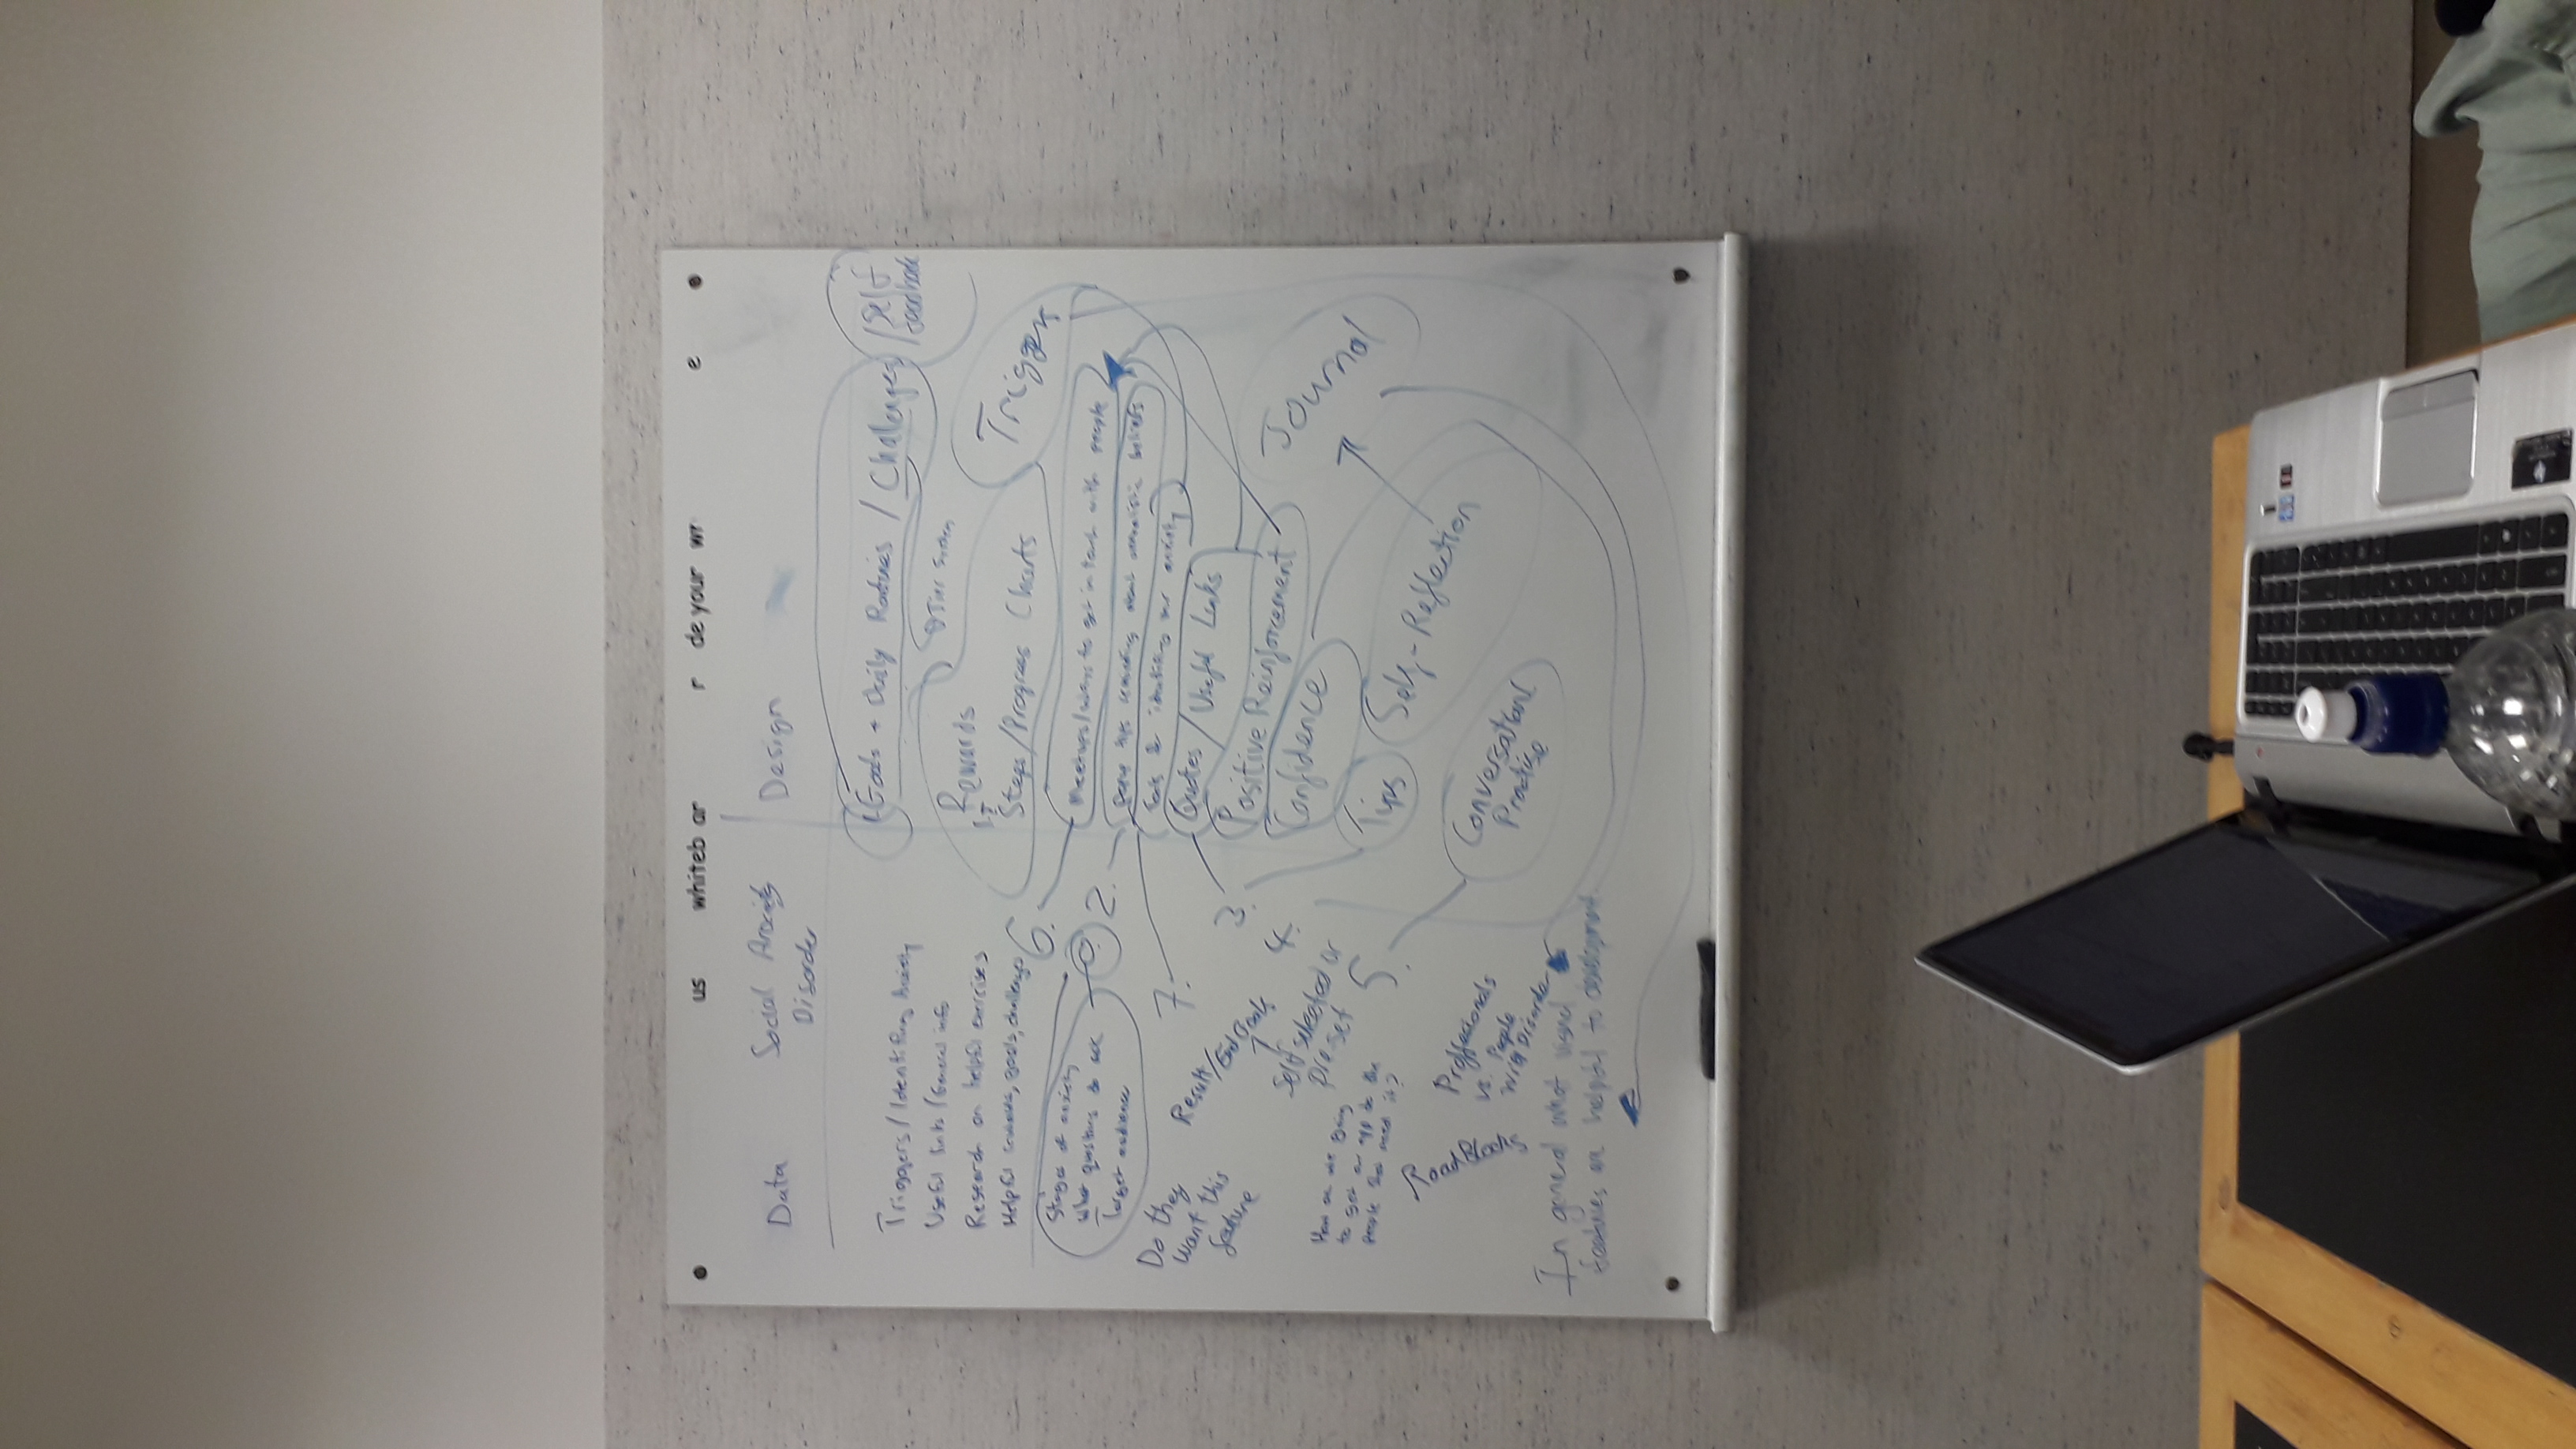 us whiteb ar r de your wr e
Data
Social Anxiety
Disorder
Triggers / Identifing Anxiety
Useful links / General info
Research on helpful exercises
Helpful goals, challenges
Stages of anxiety
What questions to ask
Target audience
0.
Do they
Want this
feature
Result/End Goals
Self selected or
Preset
How are we going
to get our app to the
people that need it?
RoadBlocks
Proffesionals
vs. People
With Disorder
In general what visual
features are helpful to development.
Design
1. Goals + Daily Routines / Challenges
/ Self
feedback
Tier System
Rewards
Steps / Progress Charts
Trigger
6.
Meetups / ways to get in touch with people
2.
tips about beliefs
7.
Tools for identifing anxiety
3.
Quotes / Useful Links
Positive Reinforcement
4.
Confidence
Journal
Tips
Self-Reflection
5.
Conversational
Practise